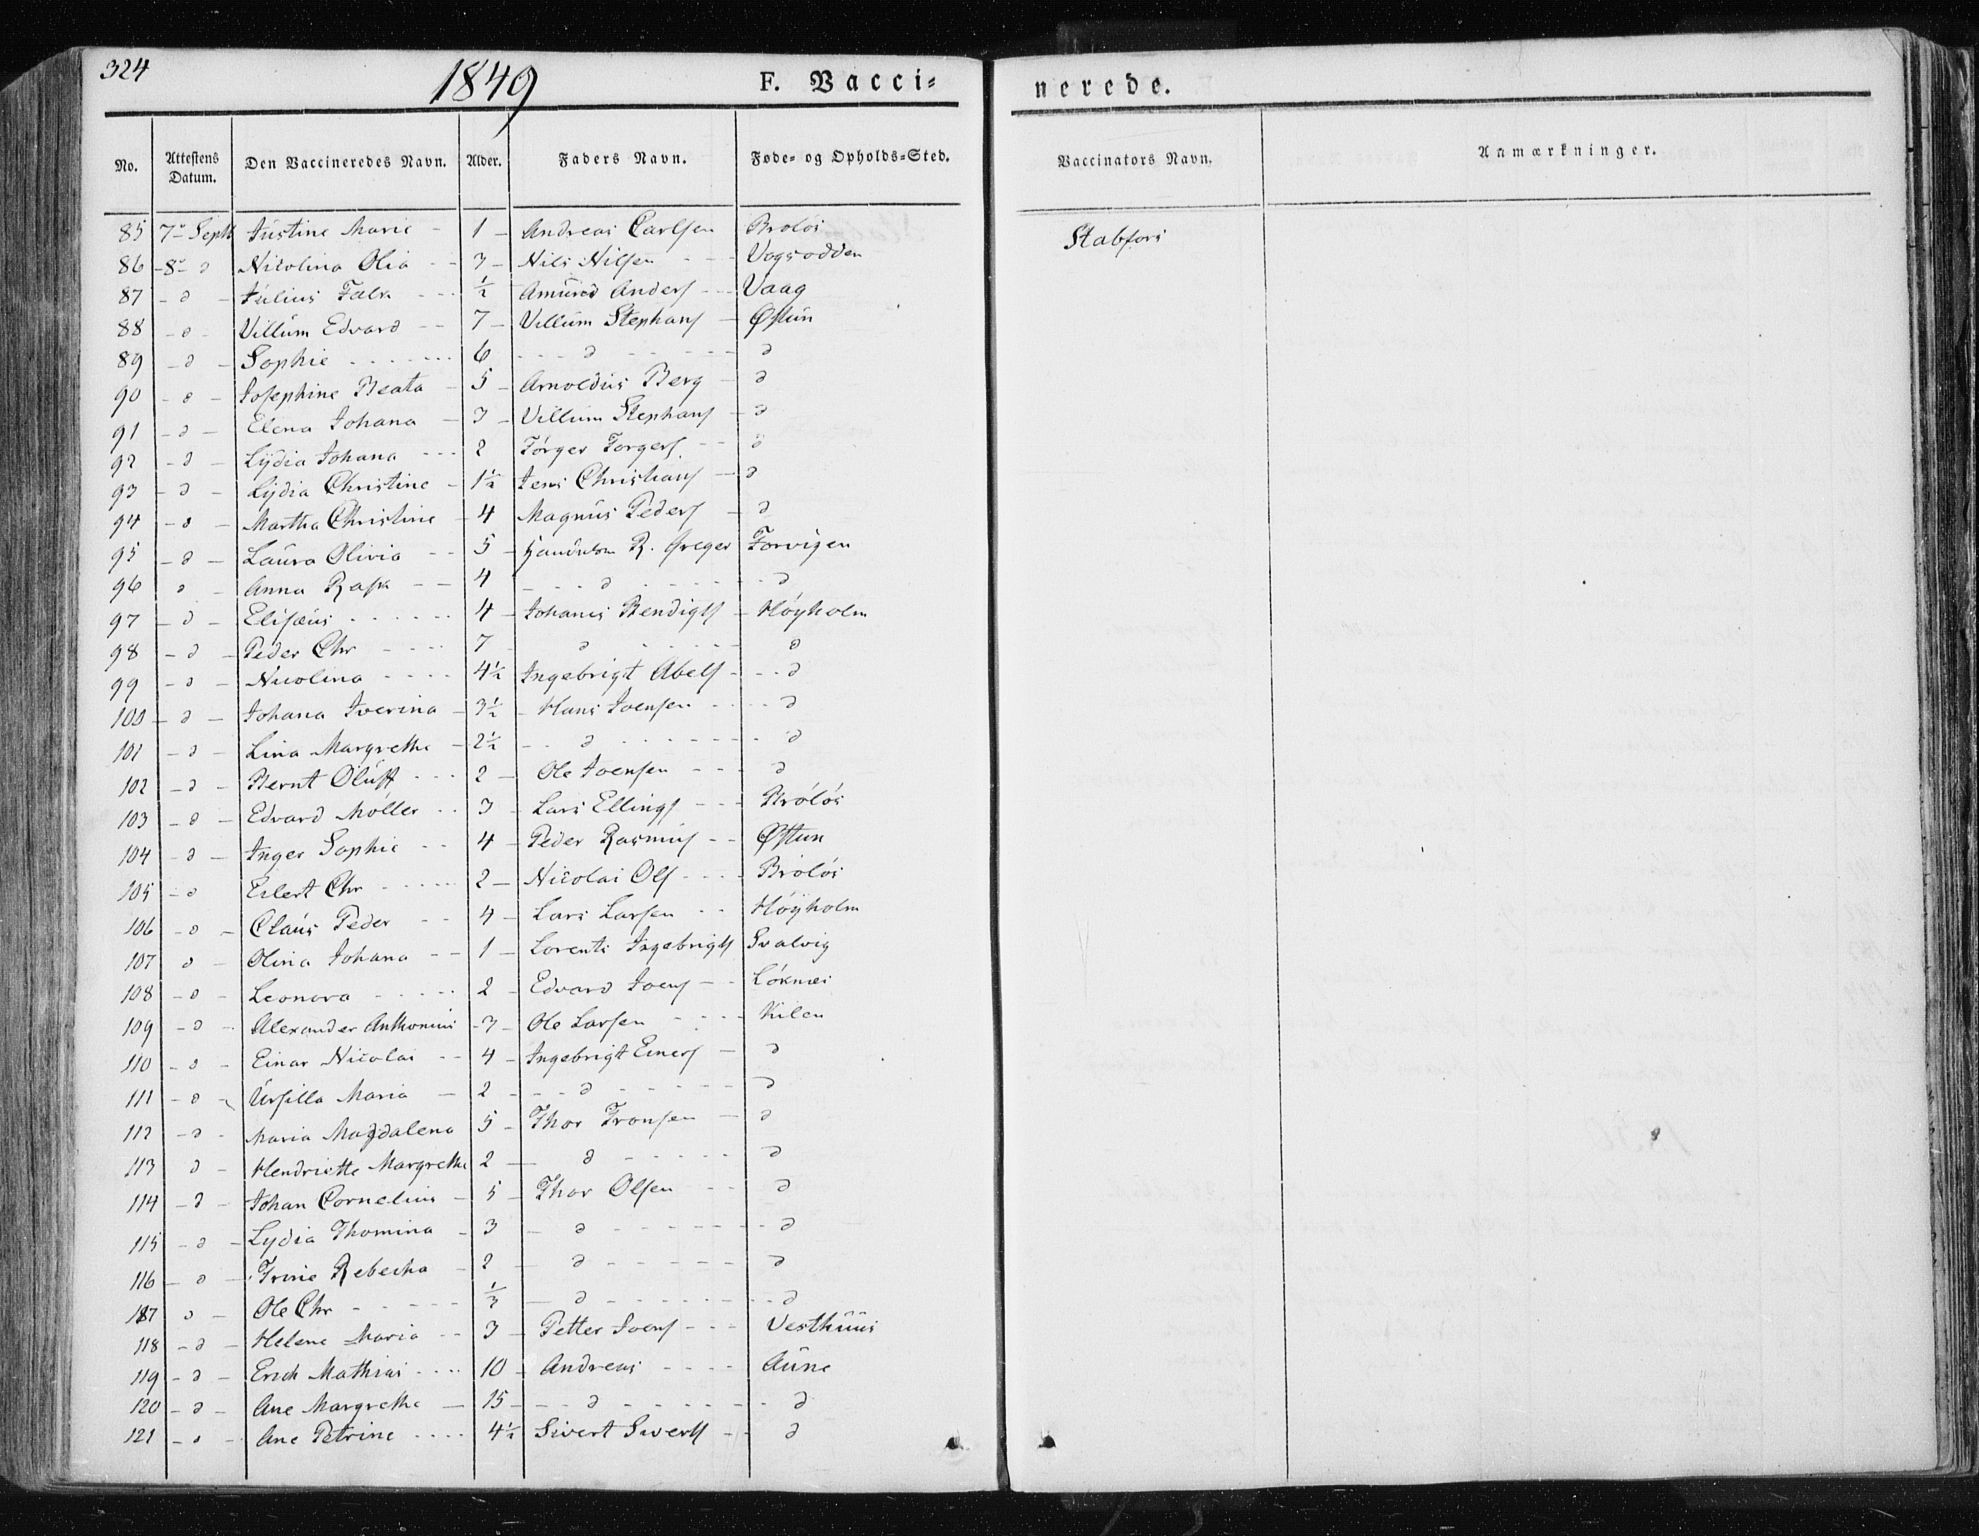 324
1849
F. Vacci-
nerede.
No. Attestens Datum. Den Vaccineredes Navn. Alder. Faders Navn. Føde- og Opholds-Sted. Vaccinators Navn. Anmærkninger.
85 7- Sept Justine Marie - 1 - Andreas Carlsen Broløs Stabfors
86 -8- d Nicolina Olia - - 3 - Nils Nilsen - - - Vogsodden
87 - d - Julius Falk - - - ½ Amund Anders - - Vaag
88 - d - Villum Edvard - - 7 - Villum Stephans - Østun
89 - d - Sophie - - - - - - 6 - - - d - - - - - d
90 - d - Josephine Beata - 5 - Arnoldus Berg - d
91 - d - Elena Johana - 3 - Villum Stephans - d
92 - d - Lydia Johana - - - 2 Torger Torgers - - d
93 - d - Lydia Christine - 1½ Jens Christians - d
94 - d - Martha Christine - 4 Magnus Peders - d
95 - d - Laura Olivia - - 5 - R. Greger Forvigen
96 d - Anna Rask - - 4 - - - d - - - - - - d
97 - d - Elisæus - - - - - - 4 - Johanes Bendigts - Høyholm
98 - d - Peder Chr - - - - 7 - d - - - - - d
99 - d - Nicolina - - - - 4½ Ingebrigt Abels - - - d
100 - d - Johana Iverina - 3½ - Hans Joensen - - - - d
101 - d - Lina Margrethe - 2½ - - d - - - - - - d
102 - d - Bernt Oluff - - - 2 - Ole Joensen - - - d
103 - d - Edvard Møller - - 3 - Lars Ellings - - - Broløs
104 - d - Inger Sophie - - 4 - Peder Rasmus - - Østun
105 - d Eilert Chr - - - - - 2 - Nicolai Ols - - - - Broløs
106 - d - Claus Peder - - 4 - Lars Larsen - - Høyholm
107 d - Olina Johana - - 1 - Lorents Ingebrigts Svalvig
108 - d - Leonora - - - - - 2 - Edvard Joens - - Løknæs
109 - d - Alexander Anthonius - 3 - Ole Larsen - - - - Kilen
110 - d - Einar Nicolai - - 4 - Ingebrigt Einers - d
111 - d - Ursilla Maria - 2 - - - d - - - - - d
112 - d - Maria Magdalena 5 - Thor Tronsen - d
113 d - Hendriette Margrethe 2 - d - - - - - d
114 - d - Johan Cornelius - 5 - Thor Olsen - - d
115 - d - Lydia Thomina - 3 - d - - - - - - d
116 - d - Trine Rebecka - 2 - d - - - - - d
117 d - Ole Chr - - - - - ⅓ - d - - - - - - d
118 - d - Helene Maria - - 3 - Petter Joens - - - Vesthuus
119 - d - Erich Mathias - - - - 10 - Andreas - - - - Aune
120 - d - Ane Margrethe - 15 - - - d - - - - - - d
121 - d - Ane Petrine - - - - 4½ Sivert Siverts - - d